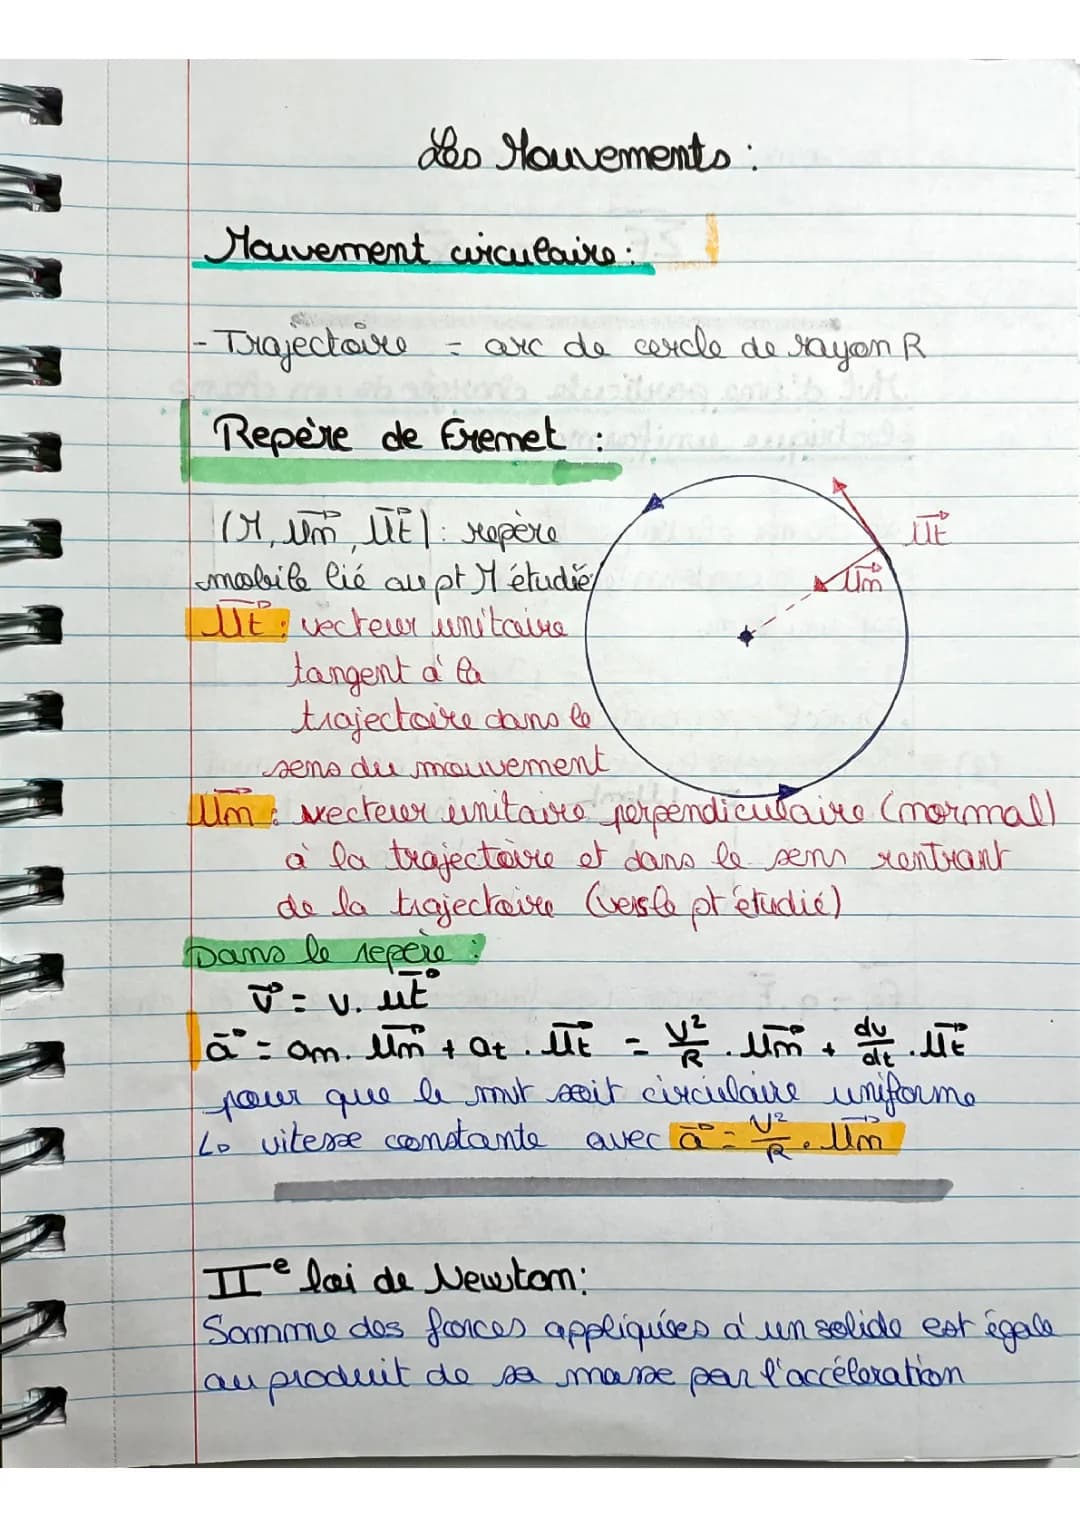 Les Mouvements :
Mouvement circulaire :
- Trajectoire = arc de cercle de rayon R
Repère de Frenet :
(M, un→, ut→) : repère
mobile lié au pt M étudié
ut→ : vecteur unitaire
tangent à la
trajectoire dans le
sens du mouvement
ut→
un→
un→ : vecteur unitaire perpendiculaire (normal)
à la trajectoire et dans le sens rentrant
de la trajectoire (vers le pt étudié)
Dans le repère :
v→ = v. ut→
a→ = an. un→ + at . ut→ = v²/R . un→ + dv/dt . ut→
pour que le mvt soit circulaire uniforme
↳ vitesse constante avec a→ = v²/R . un→
IIe loi de Newton :
Somme des forces appliquées à un solide est égale
au produit de sa masse par l'accéleration